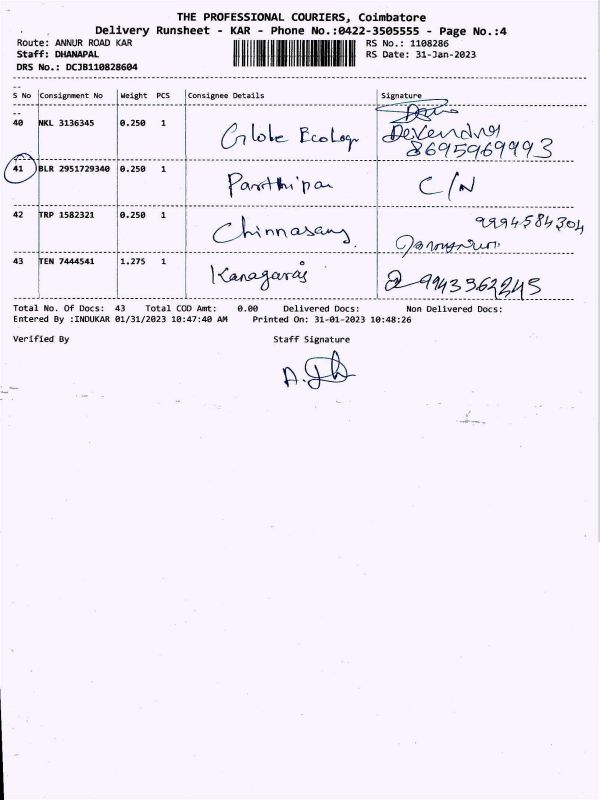 THE PROFESSIONAL COURIERS, Coimbatore
Delivery Runsheet - KAR - Phone No.:0422-3505555 - Page No.:4
Route: ANNUR ROAD KAR RS No.: 1108286
Staff: DHANAPAL RS Date: 31-Jan-2023
DRS No.: DCJB110828604
S No Consignment No Weight PCS Consignee Details Signature
40 NKL 3136345 0.250 1 Globe Ecology Devendra
8695969993
41 BLR 2951729340 0.250 1 Parthipan C/N
42 TRP 1582321 0.250 1 Chinnasamy 9994584304
43 TEN 7444541 1.275 1 Kanagaraj 9943362245
Total No. Of Docs: 43 Total COD Amt: 0.00 Delivered Docs: Non Delivered Docs:
Entered By :INDUKAR 01/31/2023 10:47:40 AM Printed On: 31-01-2023 10:48:26
Verified By Staff Signature